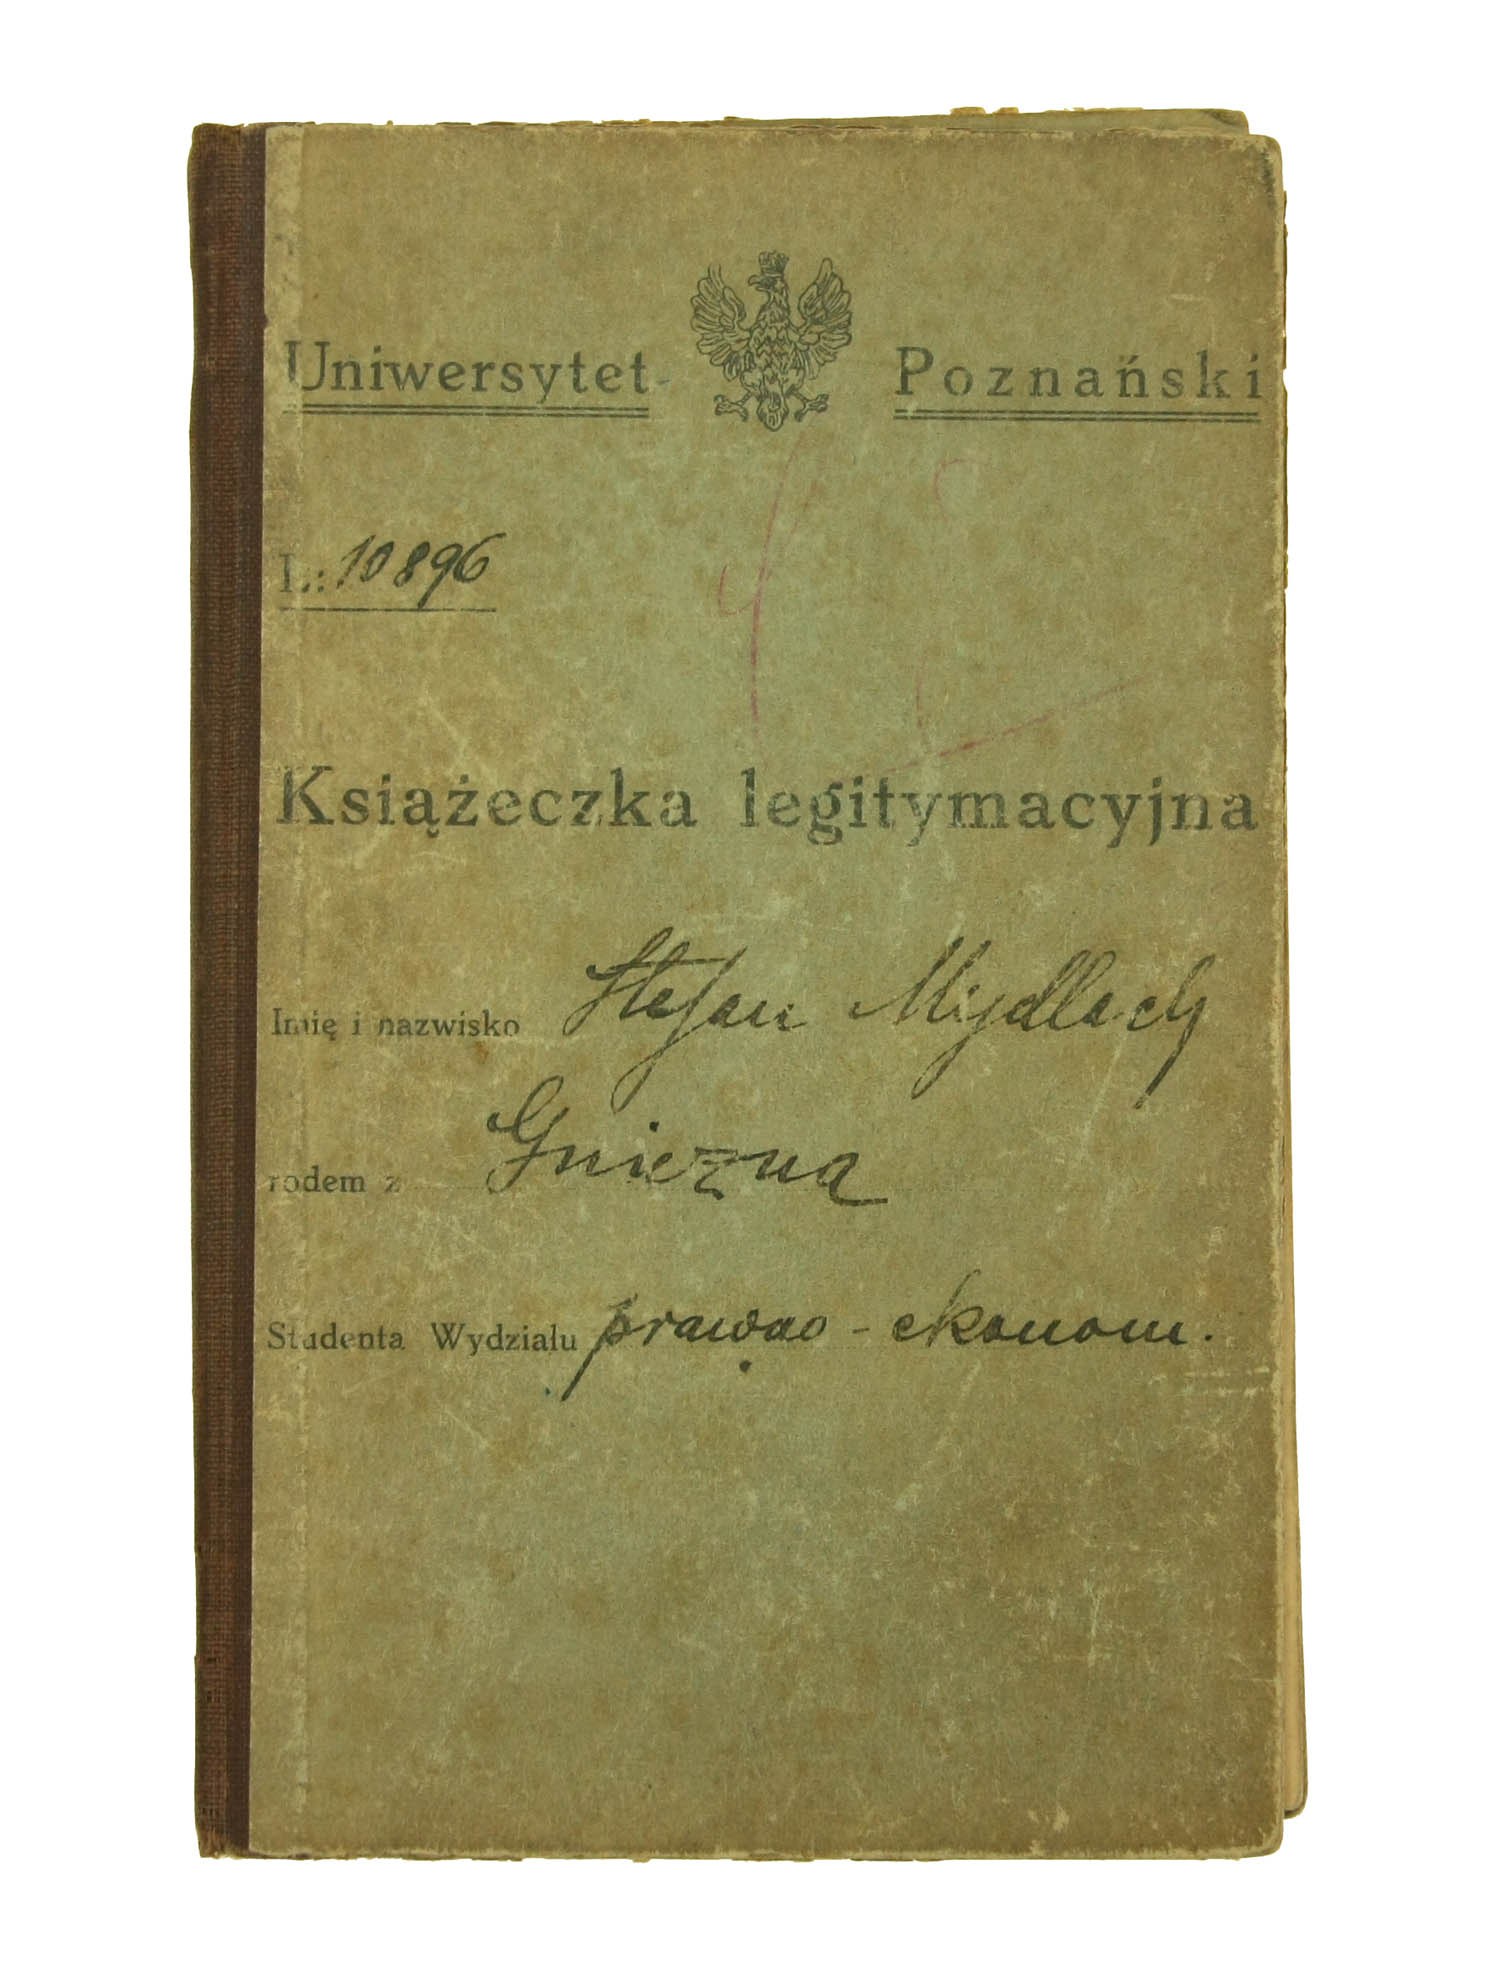 Uniwersytet Poznański
L: 10896
Książeczka legitymacyjna
Imię i nazwisko Stefan Mydlach
rodem z Gniezna
Studenta Wydziału prawno-ekonom.